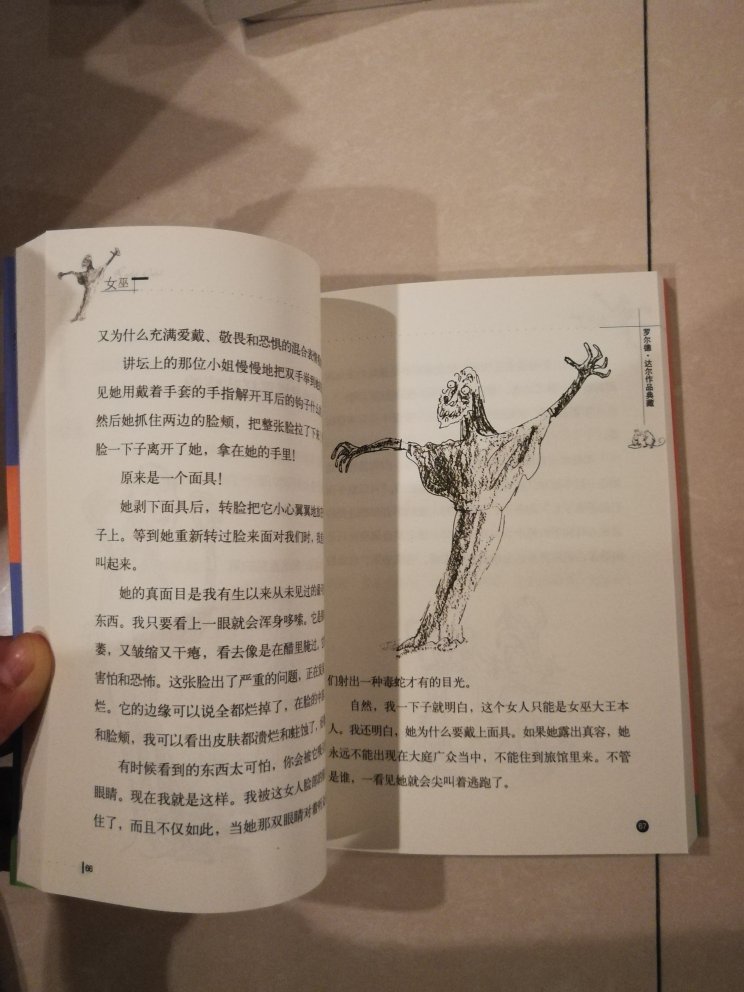 女巫
又为什么充满爱戴、敬畏和恐惧的混合
讲坛上的那位小姐慢慢地把双手举到
见她用戴着手套的手指解开耳后的钩子什么
然后她抓住两边的脸颊，把整张脸拉了下来
脸一下子离开了她，拿在她的手里！
原来是一个面具！
她剥下面具后，转脸把它小心翼翼地
子上。等到她重新转过脸来面对我们时，
叫起来。
她的真面目是我有生以来从未见过的
东西。我只要看上一眼就会浑身哆嗦。它
萎，又皱缩又干瘪，看去像是在醋里腌过，
害怕和恐怖。这张脸出了严重的问题，正在
烂。它的边缘可以说全都烂掉了，在脸的中
和脸颊，我可以看出皮肤都溃烂和蛀蚀了，
有时候看到的东西太可怕，你会被它
眼睛。现在我就是这样。我被这女人脸
住了，而且不仅如此，当她那双眼睛对
66
罗尔德·达尔作品典藏
们射出一种毒蛇才有的目光。
自然，我一下子就明白，这个女人只能是女巫大王本
人。我还明白，她为什么要戴上面具。如果她露出真容，她
永远不能出现在大庭广众当中，不能住到旅馆里来。不管
是谁，一看见她就会尖叫着逃跑了。
67